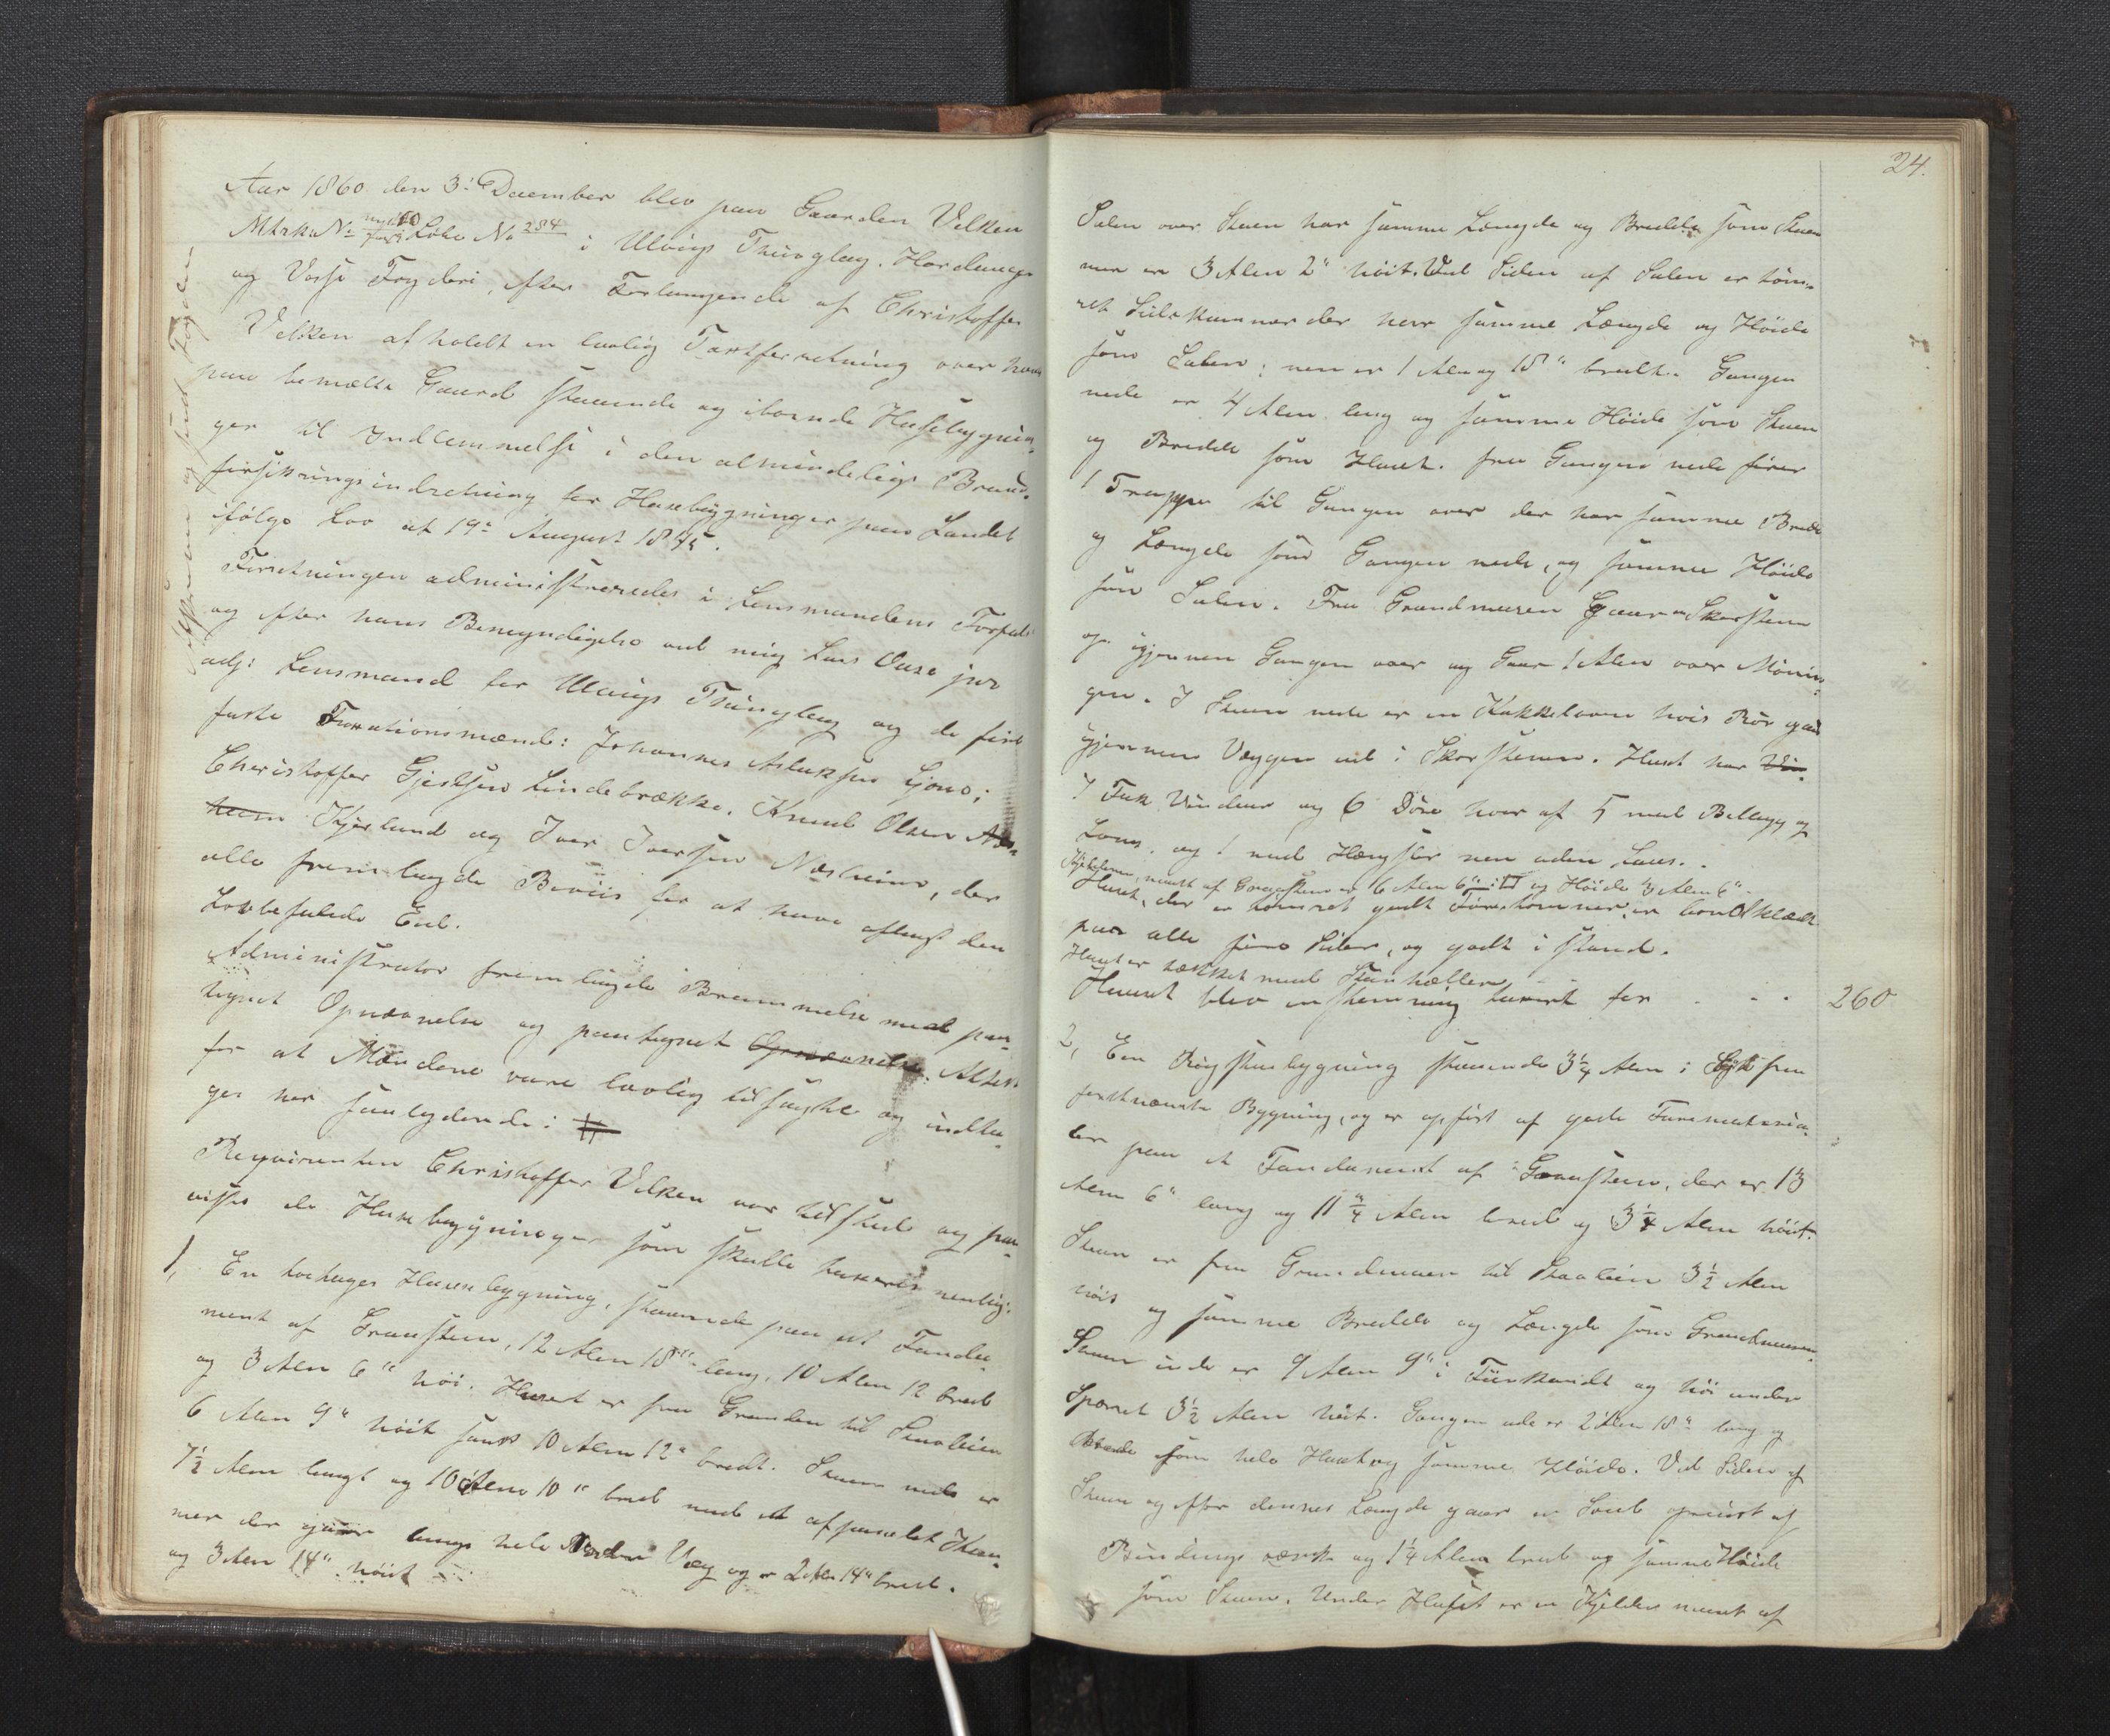 Aar 1860 den 3die December blev paa Gaarden Velken
Mtrku No Løbe No 284 i Ulvigs Thinglag. Hardanger
og Vosse Fogderi, efter Forlangende af Christoffer
Velken afholdt en lovlig Taxtforretning over hans
paa bemældte Gaard staaende og iboende Husebygnin-
ger til Indlemmelse i den almindelige Brand-
forsikringsindretning for Husebygninger paa Landet
ifølge Lov af 19de August 1845.
Forretningen administreredes i Lensmandens Forfald
og efter hans Bemyndigelse ved mig Lars
adj: Lensmand for Ulvigs Thinglag og de fire
faste Taxationsmænd: Johannes Aslaksen Ljono;
Christoffer Gjertsen Lindebrække, Knud Olsen
Kjerland og Iver Iversen Næsheim, der
alle fremlagde Beviis for at have aflagt den
Lovbefalede Eed.
Administrator fremlagde Berammelse med paa-
tegnet Opnævnelse og paategnet Opnævnelse Attest
for at Mændene vare lovlig tilsagte og indta-
ges her saalydende: #
Requirenten Christoffer Velken var tilstede og paa-
viste de Husebygninger som skulle taxeres nemlig:
1, En toetages Huusebygning, staaende paa et Funda-
ment af Graasteen, 12 Alen 18" lang, 10 Alen 12 bred
og 3 Alen 6" høi. Huset er fra Grunden til
6 Alen 9" høit samt 10 Alen 12" bredt. Stuen nede er
7½ Alen langt og 10 Alen 10" bred med et afpanelet Kam-
mer der gaar langs hele Væg og er 2 Al. 14" bred.
og 3 Alen 14" høit
24.
Salen over Stuen har samme Længde og Bredde som Stuen
men er 3 Alen 2" høit. Ved Siden af Salen er tøm-
ret der har samme Længde og Høide
som Salen; men er 1 Alen og 18" bredt. Gangen
nede er 4 Alen lang og samme Høide som Stuen
og Bredde som Huset. fra Gangen nede fører
1 Trappe til Gangen over der har samme Bredde
og Længde som Gangen nede, og samme Høide
som Salen. Fra Grundmuren gaar en Skorsteen
op igjennem Gangen over og gaar 1 Alen over Mønin-
gen. I Stuen nede er en Kakkelovn hvis Rør gaar
igjennem Væggen ud i Skorstenen. Huset har
7 Fak Vinduer og 6 Døre hvor af 5 med Beslagg og
Laas, og 1 med Hængsler men uden Laas.
Kjelderen, muret af Graasteen er 6 Alen 6" i □ og Høide 3 Alen 6".
Huset, der er tømret godt Furretømmer, er bordklædt
paa alle sine Sider, og godt i stand.
Huset er tækket med Steenheller
Huuset blev enstemmig taxeret for - - - 260
2, En Røgstuebygning staaende 3¼ Alen i Syd fra
førstnævnte Bygning, og er opført af gode Furemateria-
ler paa et Fundament af Graasteen, der er 13
Alen 6" lang og 11¼ Alen bred og 3¼ Alen høit.
Stuen er fra Grundmuren til 3½ Alen
høit og samme Bredde og Længde som Grundmuren.
Stuen inde er 9 Alen 9" i Fiirkandt og høi under
Sparret 3½ Alen høit. Gangen ude er 2 Alen 18" lang og
Brede som hele Huset og samme Høide. Ved Siden af
Stuen og efter dennes Længde gaar en Svul opreist af
Bindingsværk og 1¼ Alen bred og samme Høide
som Stuen. Under Huset er en Kjelder muret af